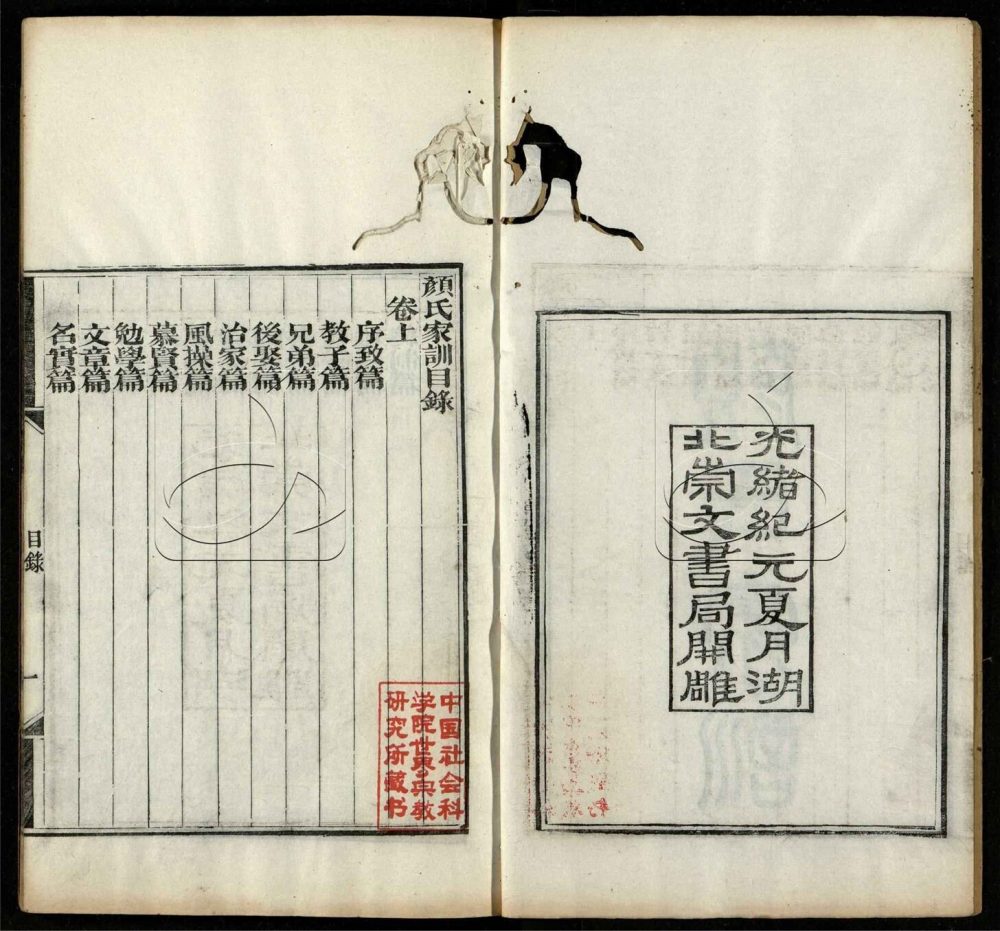 光緒紀元夏月湖
北崇文書局開雕
顏氏家訓目錄
卷上
序致篇
教子篇
兄弟篇
後娶篇
治家篇
風操篇
慕賢篇
勉學篇
文章篇
名實篇
目錄
一
中国社会科
学院世界宗教
研究所藏书